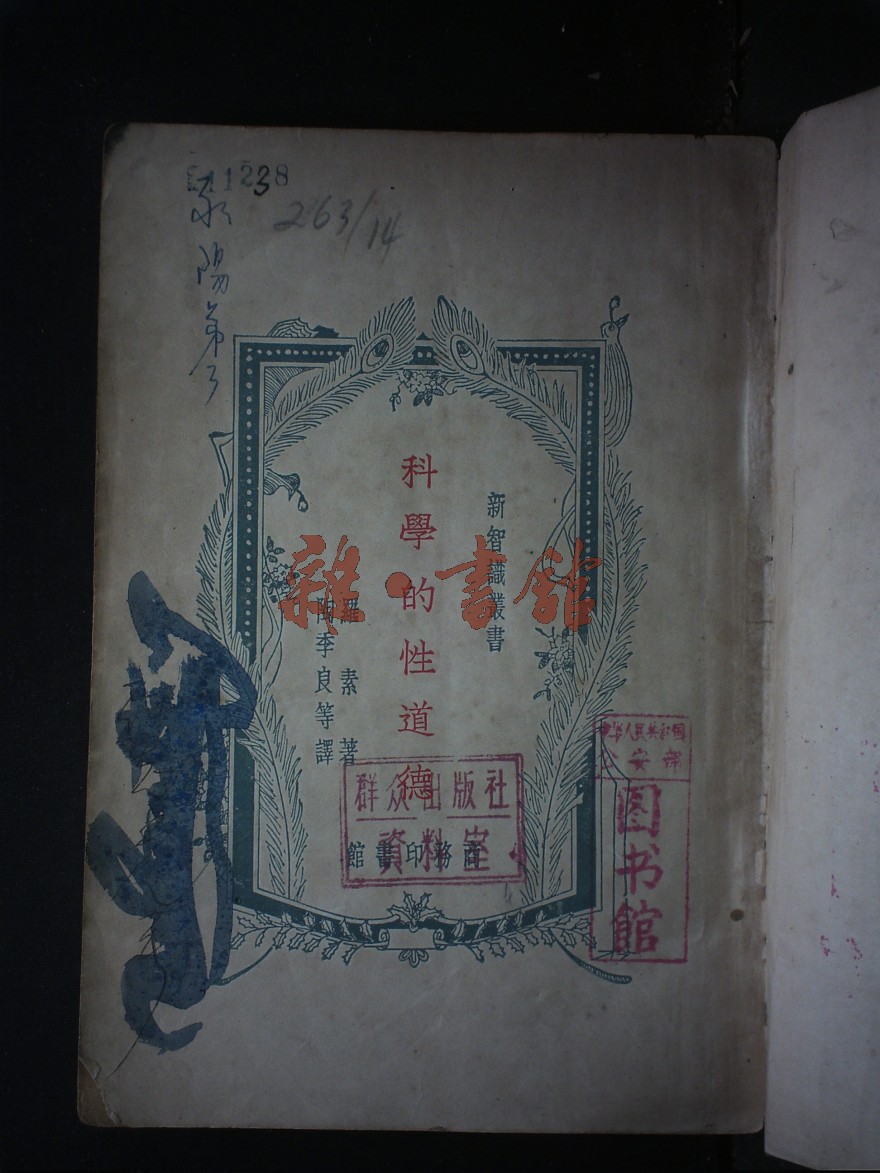 1238
263/14
新智識叢書
科學的性道德
羅素著
陶季良等譯
商務印書館
雜·書館
群众出版社
資料室
中华人民共和国
公安部
图书馆